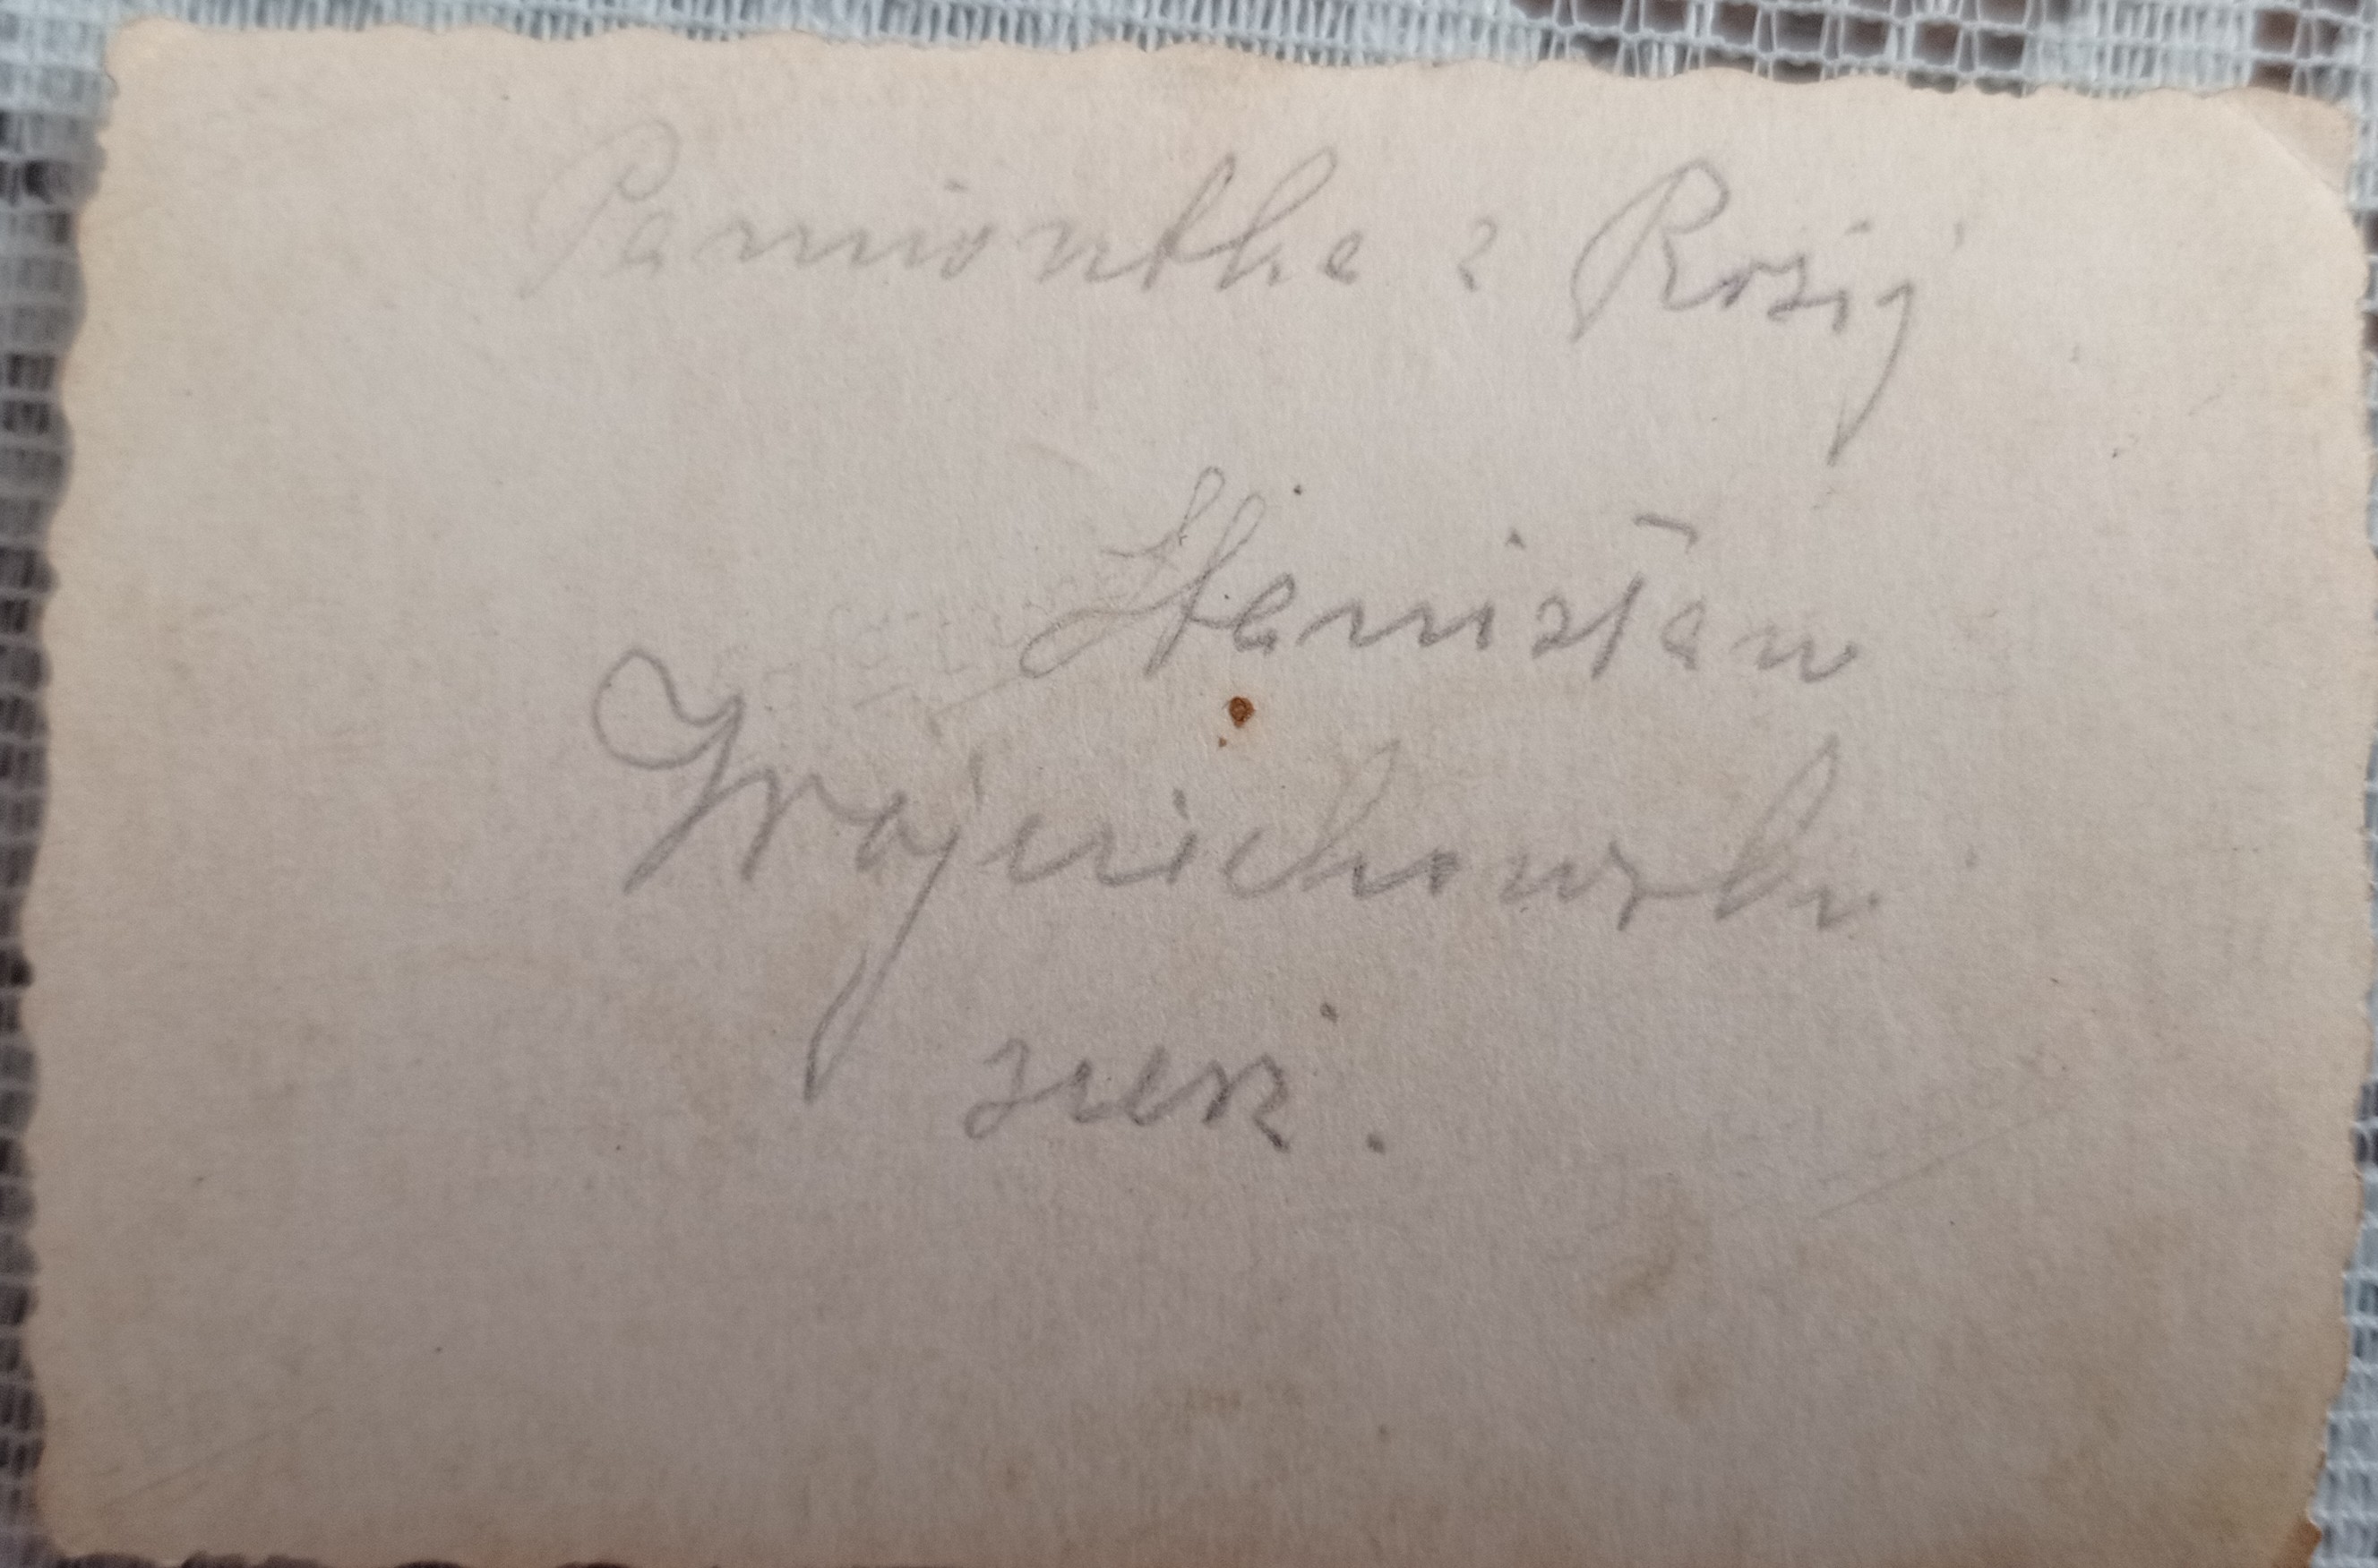 Pamiontka z Rosij
Stanisław
Wojciechowski